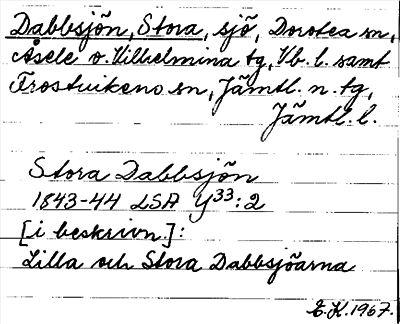 Dabbsjön, Stora, sjö, Dorotea sn,
Åsele o. Vilhelmina tg, Vb. l. samt
Frostvikens sn, Jämtl. n. tg,
Jämtl. l.
Stora Dabbsjön
1843-44 LSA Y33:2
[i beskrivn.]:
Lilla och Stora Dabbsjöarna
E.K. 1967.